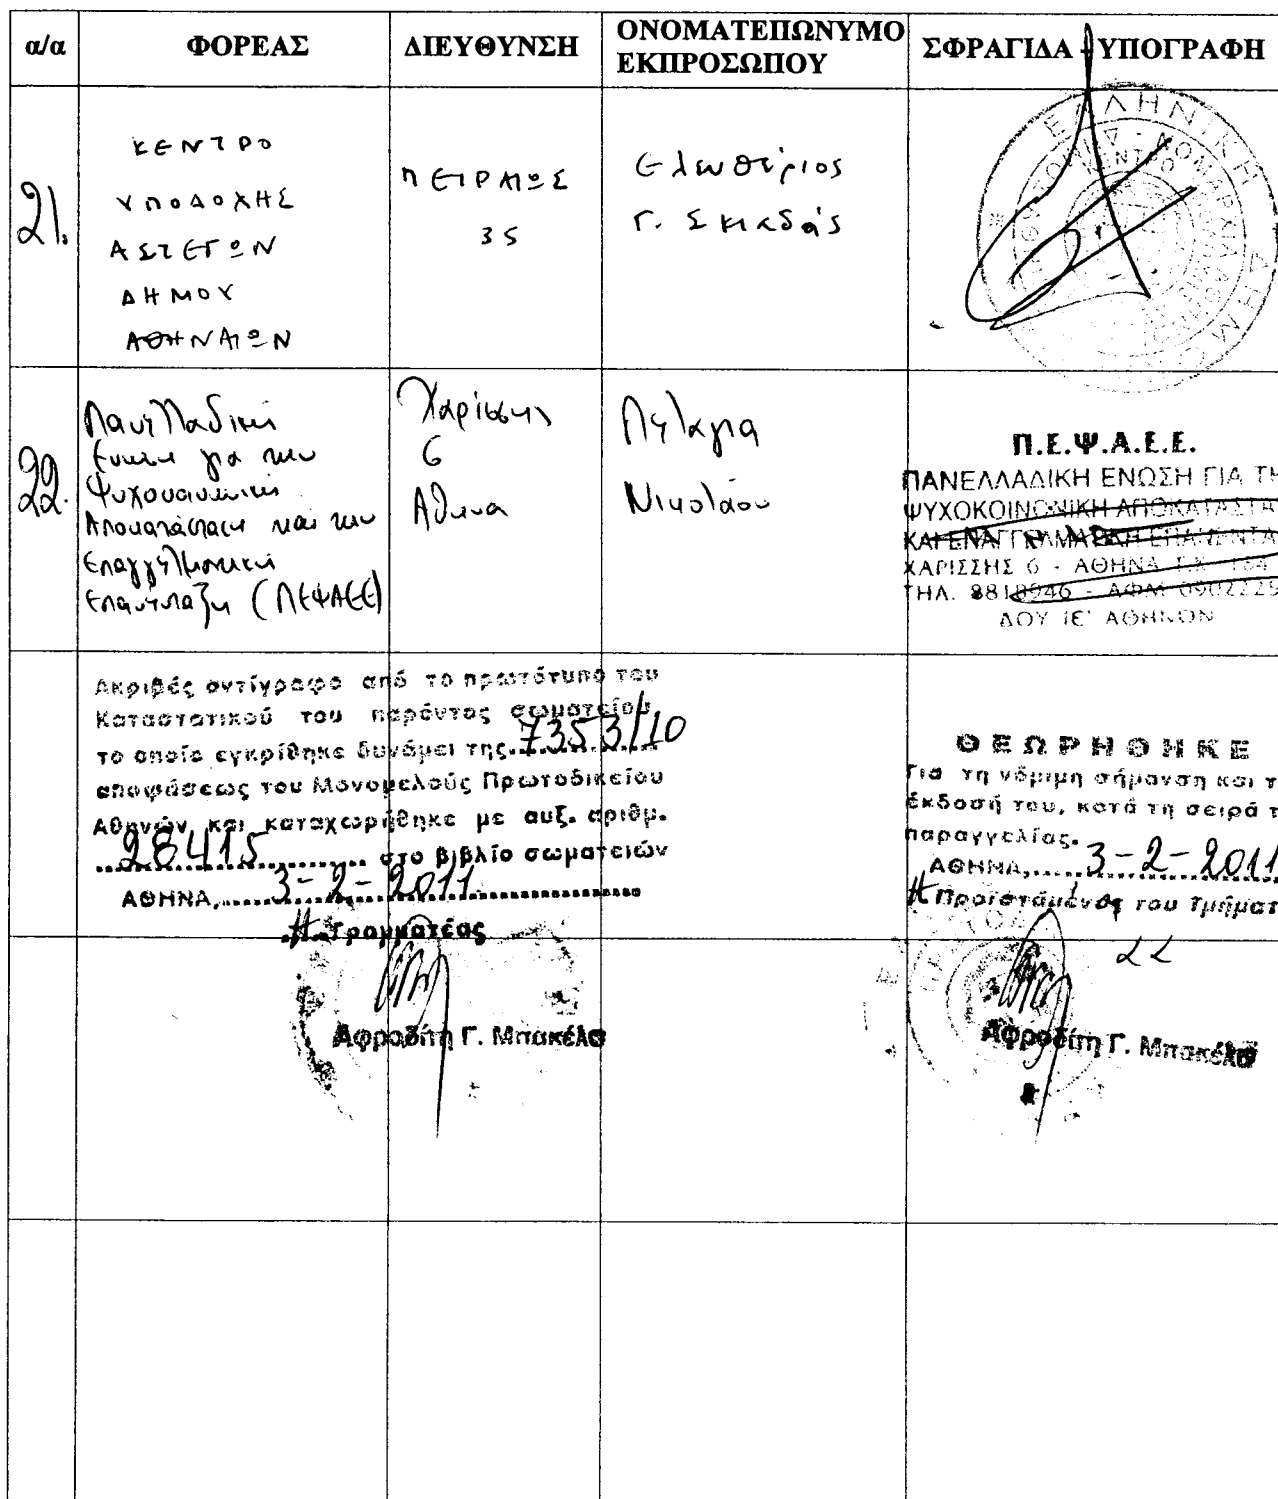 α/α ΦΟΡΕΑΣ ΔΙΕΥΘΥΝΣΗ ΟΝΟΜΑΤΕΠΩΝΥΜΟ ΕΚΠΡΟΣΩΠΟΥ ΣΦΡΑΓΙΔΑ - ΥΠΟΓΡΑΦΗ
21.
ΚΕΝΤΡΟ
ΥΠΟΔΟΧΗΣ
ΑΣΤΕΓΩΝ
ΔΗΜΟΥ
ΑΘΗΝΑΙΩΝ
ΠΕΙΡΑΙΩΣ
35
Ελευθέριος
Γ. Σκιαδάς
ΕΛΛΗΝΙΚΗ ΔΗΜΟ
ΝΟΜΑΡΧΙΑ
ΚΕΝΤΡΟ
22.
Πανελλαδική
Ένωση για την
Ψυχοκοινωνική
Αποκατάσταση και την
Επαγγελματική
Επανένταξη (ΠΕΨΑΕΕ)
Χαρίσσης
6
Αθήνα
Πελαγία
Νικολάου
Π.Ε.Ψ.Α.Ε.Ε.
ΠΑΝΕΛΛΑΔΙΚΗ ΕΝΩΣΗ ΓΙΑ ΤΗ
ΨΥΧΟΚΟΙΝΩΝΙΚΗ ΑΠΟΚΑΤΑΣΤΑ
ΚΑΙ ΕΠΑΓΓΕΛΜΑΤΙΚΗ ΕΠΑΝΕΝΤΑ
ΧΑΡΙΣΣΗΣ 6 - ΑΘΗΝΑ Τ.Κ.
ΤΗΛ. 8818946 - ΑΦΜ 0902225
ΔΟΥ ΙΕ' ΑΘΗΝΩΝ
Ακριβές αντίγραφο από το πρωτότυπο του
Καταστατικού του παρόντος σωματείου
το οποίο εγκρίθηκε δυνάμει της 7353/10
αποφάσεως του Μονομελούς Πρωτοδικείου
Αθηνών και καταχωρήθηκε με αυξ. αριθμ.
28415 στο βιβλίο σωματειών
ΑΘΗΝΑ, 3-2-2011
Η Γραμματέας
Αφροδίτη Γ. Μπακέλα
ΘΕΩΡΗΘΗΚΕ
Για τη νόμιμη σήμανση και τ
έκδοσή του, κατά τη σειρά τ
παραγγελίας.
ΑΘΗΝΑ, 3-2-2011
Η Προϊστάμενος του Τμήματ
Αφροδίτη Γ. Μπακέλα